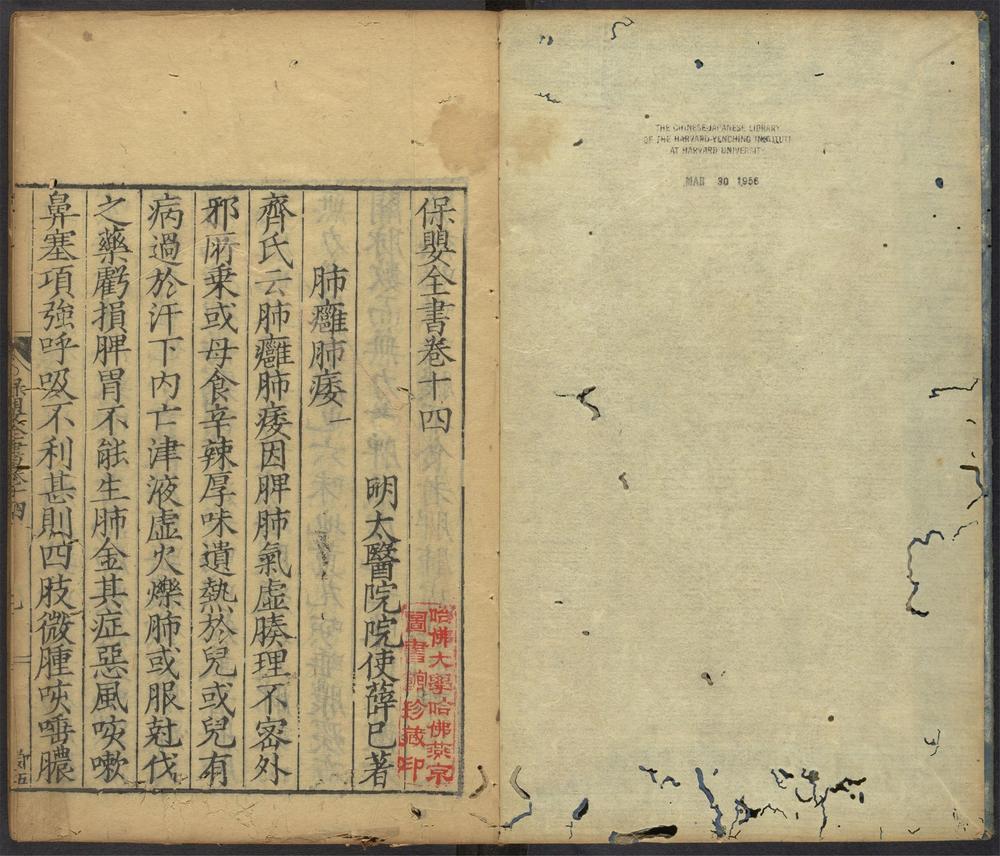 THE CHINESE-JAPANESE LIBRARY
OF THE HARVARD-YENCHING INSTITUTE
AT HARVARD UNIVERSITY
MAR 30 1956
保嬰全書卷十四
明太醫院院使薛已著
肺癰肺痿一
齊氏云肺癰肺痿因脾肺氣虛腠理不密外
邪所乘或母食辛辣厚味遺熱於兒或兒有
病過於汗下內亡津液虛火爍肺或服尅伐
之藥虧損脾胃不能生肺金其症惡風咳嗽
鼻塞項強呼吸不利甚則四肢微腫咳唾膿
哈佛大學哈佛燕京
圖書館珍藏印
保嬰全書卷十四